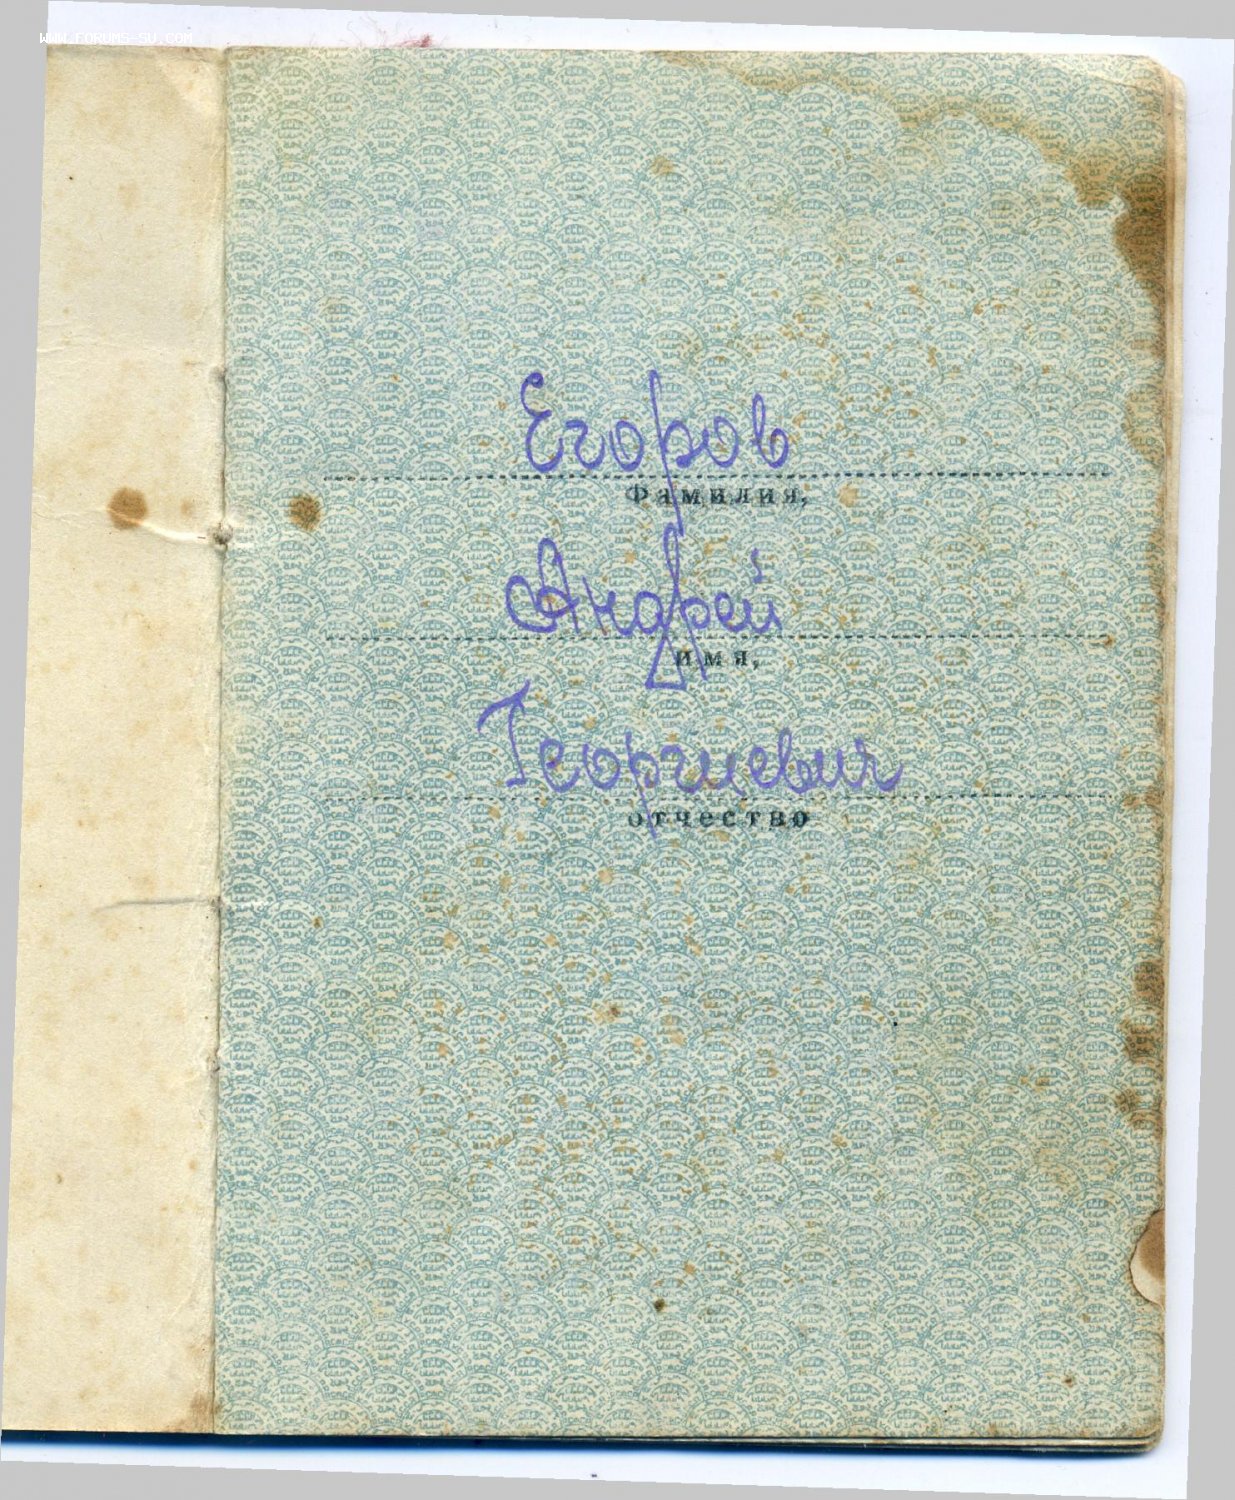 WWW.FORUMS-SU.COM
Егоров
Фамилия,
Андрей
имя,
Георгиевич
отчество